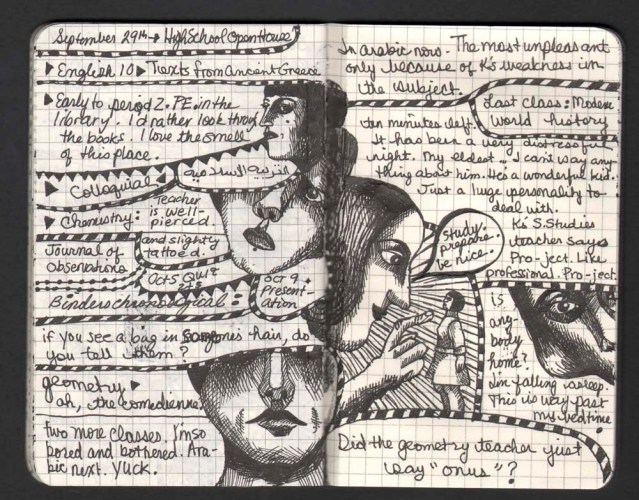 September 29th → High School Open House
▶ English 10 ▶ Texts from Ancient Greece
▶ Early to period 2. PE in the
library. I'd rather look through
the books. I love the smell
of this place.
▶ Colloquial
التربية السلامية
▶ Chemistry:
Teacher
is well-
pierced.
and slightly
tattoed.
Journal of
observations
Oct 5 Quiz
Binder chronological:
Oct 9.
Present-
ation
if you see a bug in someone's hair, do
you tell them?
geometry ▶
ah, the comedienne.
Two more classes. I'm so
bored and bothered. Ara-
bic next. Yuck.
In arabic now. The most unpleasant
only because of K's weakness in
the subject.
Last class: Modern
World history
ten minutes left.
It has been a very distressful
night. My eldest. I can't way any-
thing about him. He's a wonderful kid.
Just a huge personality to
deal with.
study.
prepare.
be nice.
K's S. Studies
teacher says
Pro-ject. Like
professional. Pro-ject.
is
any-
body
home?
I'm falling asleep.
This is way past
my bedtime
Did the geometry teacher just
say "onus"?